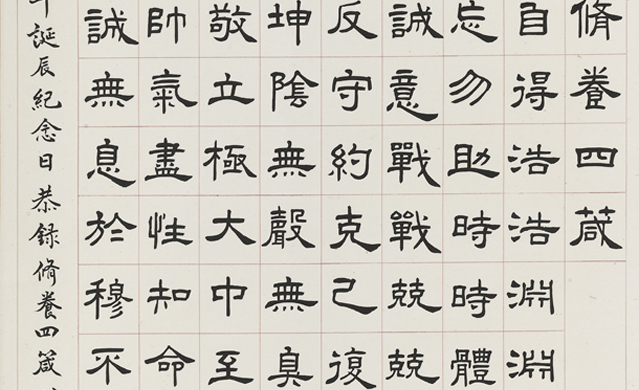 脩養四箴
自得浩浩淵淵
忘勿助時時體
誠意戰戰兢兢
反守約克己復
坤陰無聲無臭
敬立極大中至
帥氣盡性知命
誠無息於穆不
誕辰紀念日恭錄脩養四箴